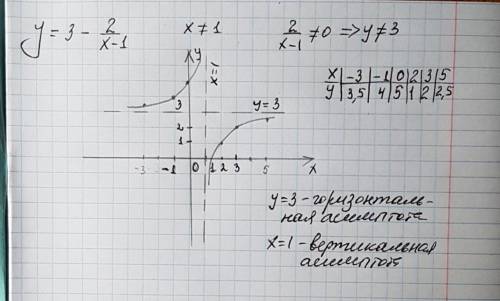 y = 3 - 2/(x-1)   x ≠ 1   2/(x-1) ≠ 0 => y ≠ 3
x | -3 | -1 | 0 | 2 | 3 | 5
y | 3,5 | 4 | 5 | 1 | 2 | 2,5
y
x=1
3
y=3
2
1
-3 -1 0 1 2 3 5 x
y=3 - горизонталь-
ная асимптота
x=1 - вертикальная
асимптот